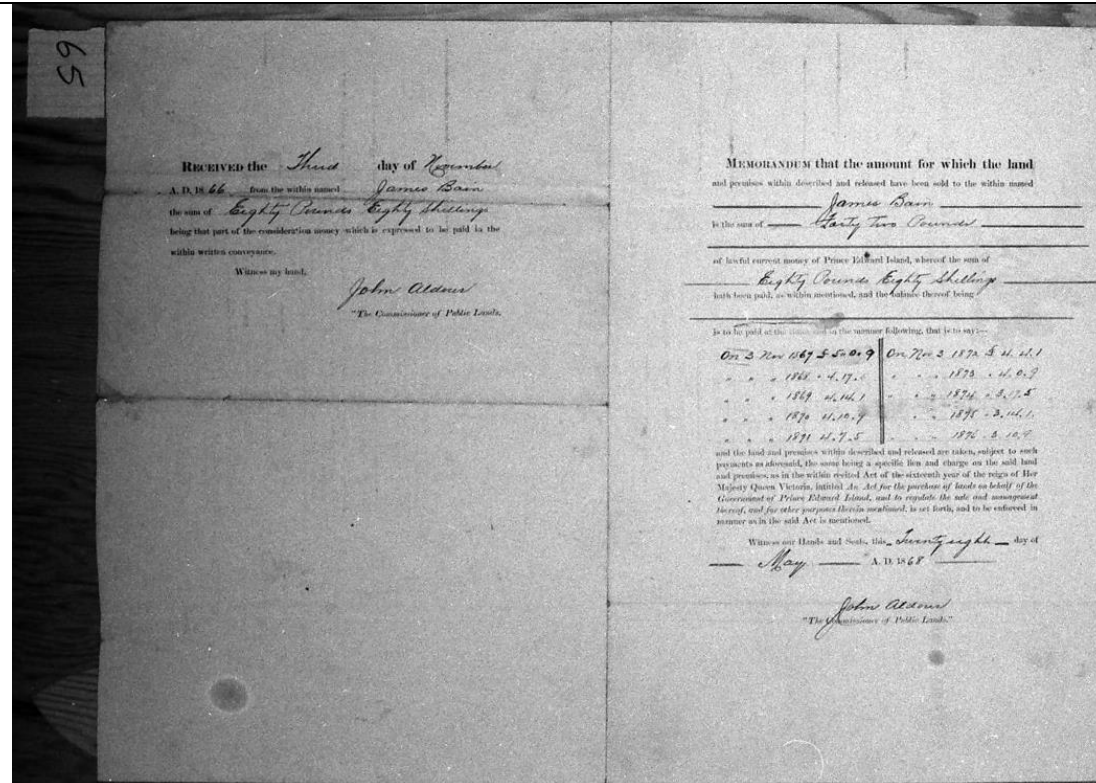 65
RECEIVED the Third day of November
A. D. 1866 from the within named James Bain
the sum of Eighty Pounds Eighty Shillings
being that part of the consideration money which is expressed to be paid in the
within written conveyance.
Witness my hand,
John Aldous
"The Commissioner of Public Lands.
MEMORANDUM that the amount for which the land
and premises within described and released have been sold to the within named
James Bain
is the sum of Forty two Pounds
of lawful current money of Prince Edward Island, whereof the sum of
Eighty Pounds Eighty Shillings
hath been paid, as within mentioned, and the balance thereof being
is to be paid at the times and in the manner following, that is to say:—
On 3 Nov 1867 £ 5.0.9 On Nov 3 1872 £ 4.4.1
" " " 1868 " 4.17. " " " 1873 " 4.0.9
" " " 1869 4.14.1 " " " 1874 " 3.17.5
" " " 1870 4.10.9 " " " 1875 " 3.14.1
" " " 1871 4.7.5 " " " 1876 " 3 10.9
and the land and premises within described and released are taken, subject to such
payments as aforesaid, the same being a specific lien and charge on the said land
and premises, as in the within recited Act of the sixteenth year of the reign of Her
Majesty Queen Victoria, intitled An Act for the purchase of lands on behalf of the
Government of Prince Edward Island, and to regulate the sale and management
thereof, and for other purposes therein mentioned, is set forth, and to be enforced in
manner as in the said Act is mentioned.
Witness our Hands and Seals, this Twenty eighth day of
May A. D. 1868
John Aldous
"The Commissioner of Public Lands."